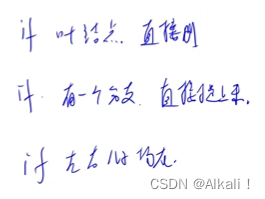 if 叶结点. 直接删
if. 有一个分支. 直接提上来.
if 左右儿子均在.
CSDN @Alkali！